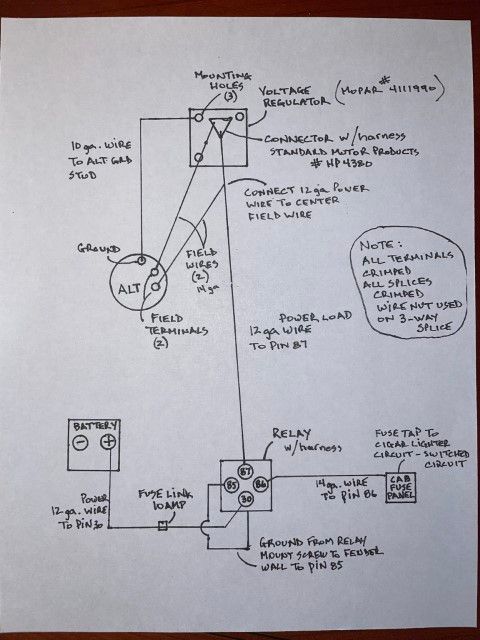 MOUNTING
HOLES
(3)
VOLTAGE
REGULATOR
(MOPAR # 4111990)
10 ga. WIRE
TO ALT GRD
STUD
CONNECTOR W/harness
STANDARD MOTOR PRODUCTS
# HP4380
CONNECT 12ga POWER
WIRE TO CENTER
FIELD WIRE
GROUND
FIELD
WIRES
(2)
14ga
ALT
FIELD
TERMINALS
(2)
NOTE:
ALL TERMINALS
CRIMPED
ALL SPLICES
CRIMPED
WIRE NUT USED
ON 3-WAY
SPLICE
POWER LOAD
12 ga WIRE
TO PIN 87
BATTERY
- +
RELAY
w/harness
FUSE TAP TO
CIGAR LIGHTER
CIRCUIT - SWITCHED
CIRCUIT
87
85
86
30
14ga. WIRE
TO PIN 86
CAB
FUSE
PANEL
POWER
12 ga. WIRE
TO PIN 30
FUSE LINK
10 AMP
GROUND FROM RELAY
MOUNT SCREW TO FENDER
WALL TO PIN 85